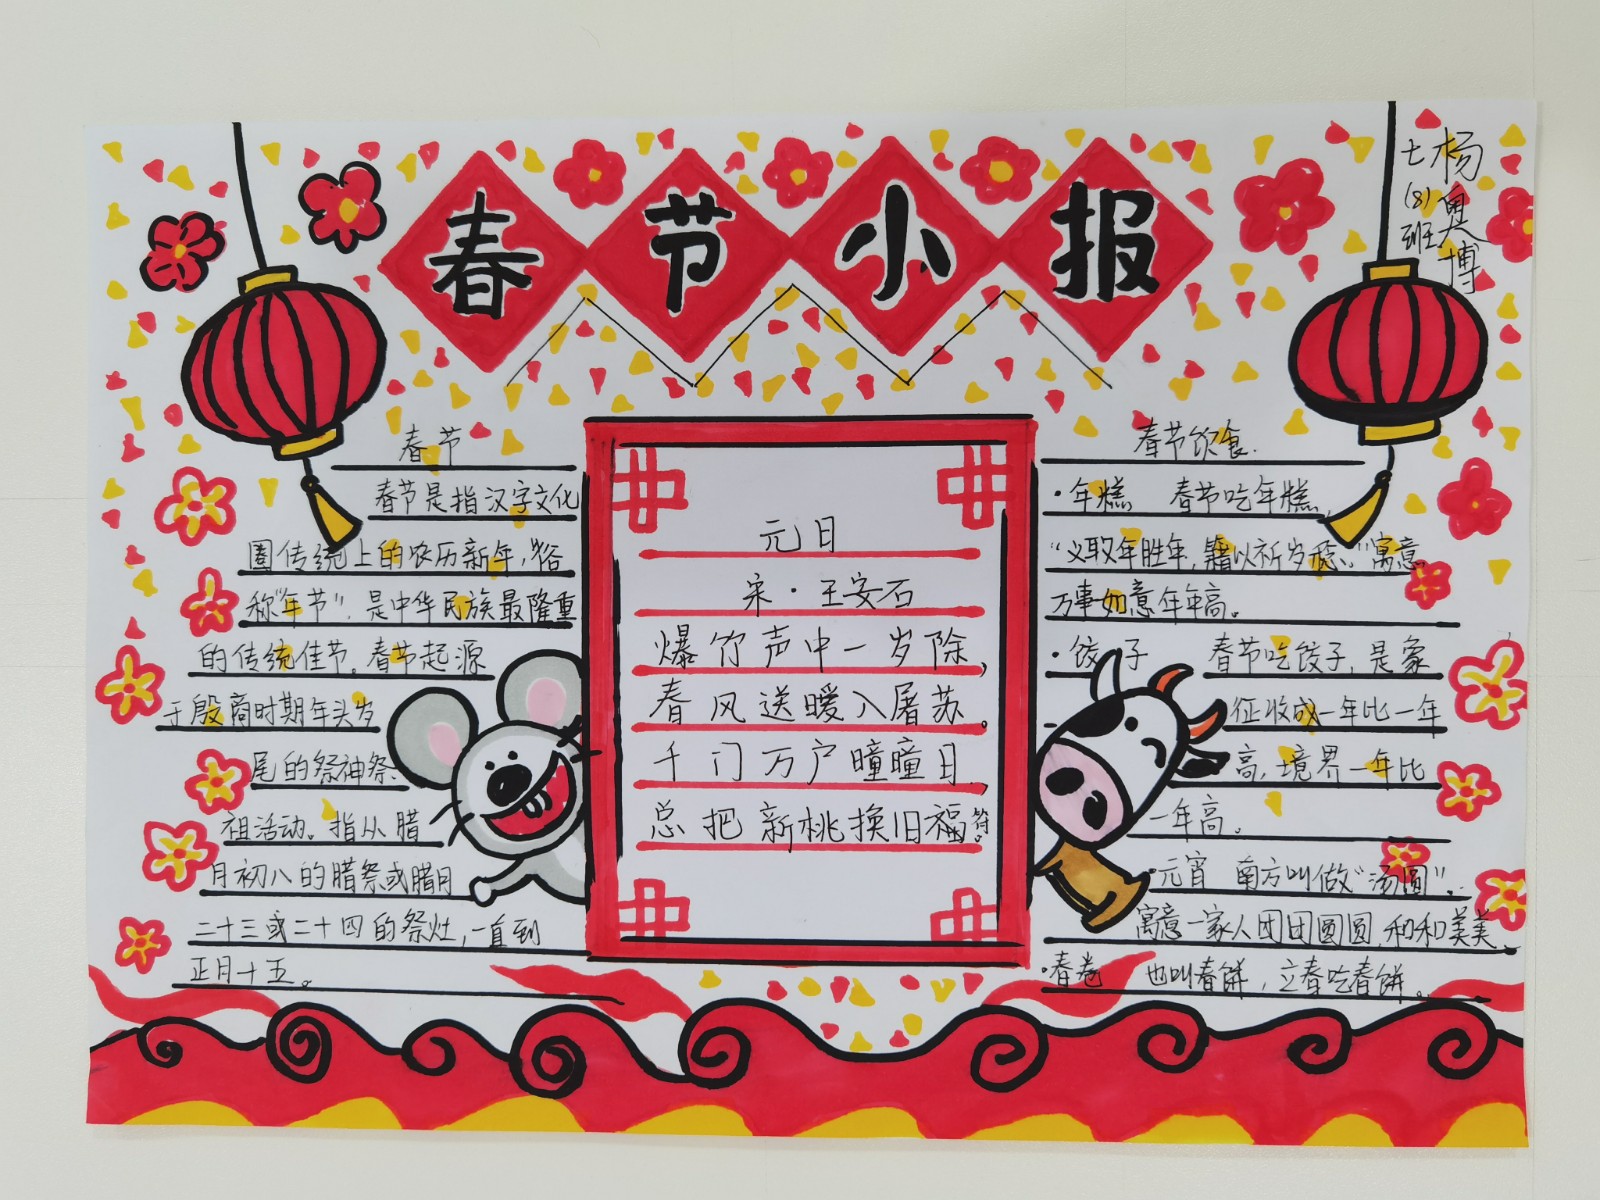 春节小报
七(8)班
杨奥博
春节
春节是指汉字文化
圈传统上的农历新年,俗
称“年节”.是中华民族最隆重
的传统佳节。春节起源
于殷商时期年头岁
尾的祭神祭
祖活动。指从腊
月初八的腊祭或腊月
二十三或二十四的祭灶,一直到
正月十五。
元日
宋·王安石
爆竹声中一岁除,
春风送暖入屠苏。
千门万户曈曈日,
总把新桃换旧福符。
春节饮食.
·年糕 春节吃年糕,
“义取年胜年,籍以祈岁稔、”寓意
万事如意年年高。
·饺子 春节吃饺子,是象
征收成一年比一年
高,境界一年比
一年高。
元宵 南方叫做“汤圆”.
寓意一家人团团圆圆,和和美美.
·春卷 也叫春饼,立春吃春饼。